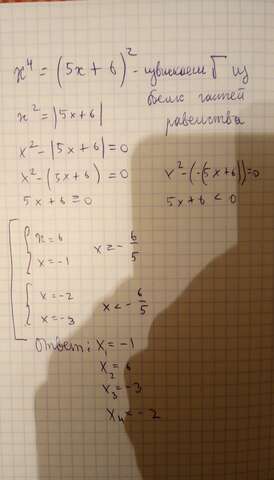 x⁴ = (5x + 6)² - извлекаем √ из
обеих частей
равенства
x² = |5x + 6|
x² - |5x + 6| = 0
x² - (5x + 6) = 0 x² - (-(5x + 6)) = 0
5x + 6 ≥ 0 5x + 6 < 0
x = 6
x = -1
x ≥ -6/5
x = -2
x = -3
x < -6/5
Ответ: x₁ = -1
x₂ = 6
x₃ = -3
x₄ = -2